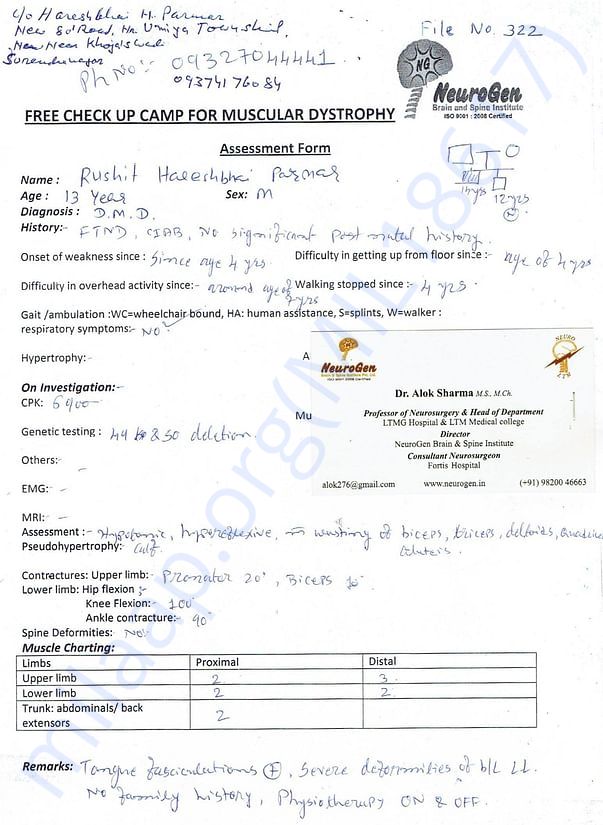 C/o Hareshbhai H. Parmar
File No. 322
New 80' Road, Nr. Umiya Township,
New Near Khojaswadi
Surendranagar
Ph No:- 09327044441
09374176084
NG
NeuroGen
Brain and Spine Institute
ISO 9001 : 2008 Certified
FREE CHECK UP CAMP FOR MUSCULAR DYSTROPHY
Assessment Form
Name : Rushit Hareshbhai Parmar
Age : 13 Year Sex: M
12 yrs
Diagnosis : D.M.D.
History:- FTND, CIAB, No significant post natal history.
Onset of weakness since : Since age 4 yrs. Difficulty in getting up from floor since :- age of 4 yrs
Difficulty in overhead activity since:- around age of 4 yrs Walking stopped since :- 4 yrs.
Gait /ambulation :WC=wheelchair bound, HA: human assistance, S=splints, W=walker :
respiratory symptoms:- No
Hypertrophy:- A
NeuroGen
Brain & Spine Institute Pvt. Ltd.
ISO 9001:2008 Certified
NEURO
Dr. Alok Sharma M.S., M.Ch.
Professor of Neurosurgery & Head of Department
LTMG Hospital & LTM Medical college
Director
NeuroGen Brain & Spine Institute
Consultant Neurosurgeon
Fortis Hospital
alok276@gmail.com www.neurogen.in (+91) 98200 46663
On Investigation:-
CPK: 6900 Mu
Genetic testing : 49 & 50 deletion.
Others:-
EMG:- -
MRI:- -
Assessment :- Hypotonic, hyporeflexive, wasting of biceps, triceps, deltoids, Gluteis.
Pseudohypertrophy:- calf
Contractures: Upper limb:- Pronator 20°, Biceps 10°
Lower limb: Hip flexion :-
Knee Flexion:- 100°
Ankle contracture:- 90°
Spine Deformities: No.
Muscle Charting:
Limbs Proximal Distal
Upper limb 2 3
Lower limb 2 2
Trunk: abdominals/ back extensors 2
Remarks: Tongue fasciculations +, Severe deformities of b/L LL.
No family history, Physiotherapy ON & OFF.
milaap.org(MIL18617)